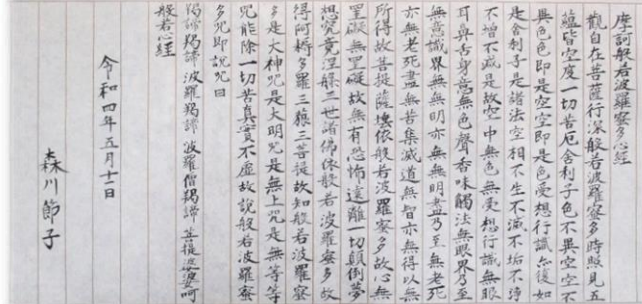 摩訶般若波羅蜜多心経
觀自在菩薩行深般若波羅蜜多時照見五
蘊皆空度一切苦厄舎利子色不異空空不
異色色即是空空即是色受想行識亦復如
是舎利子是諸法空相不生不滅不垢不浄
不增不減是故空中無色無受想行識無眼
耳鼻舌身意無色聲香味觸法無眼界乃至
無意識界無無明亦無無明盡乃至無老死
亦無老死盡無苦集滅道無智亦無得以無
所得故菩提薩埵依般若波羅蜜多故心無
罣礙無罣礙故無有恐怖遠離一切顛倒夢
想究竟涅槃三世諸佛依般若波羅蜜多故
得阿耨多羅三藐三菩提故知般若波羅蜜
多是大神咒是大明咒是無上咒是無等等
咒能除一切苦真實不虚故説般若波羅蜜
多咒即説咒曰
羯諦羯諦 波羅羯諦 波羅僧羯諦 菩提娑婆呵
般若心経
令和四年五月十一日
森川節子